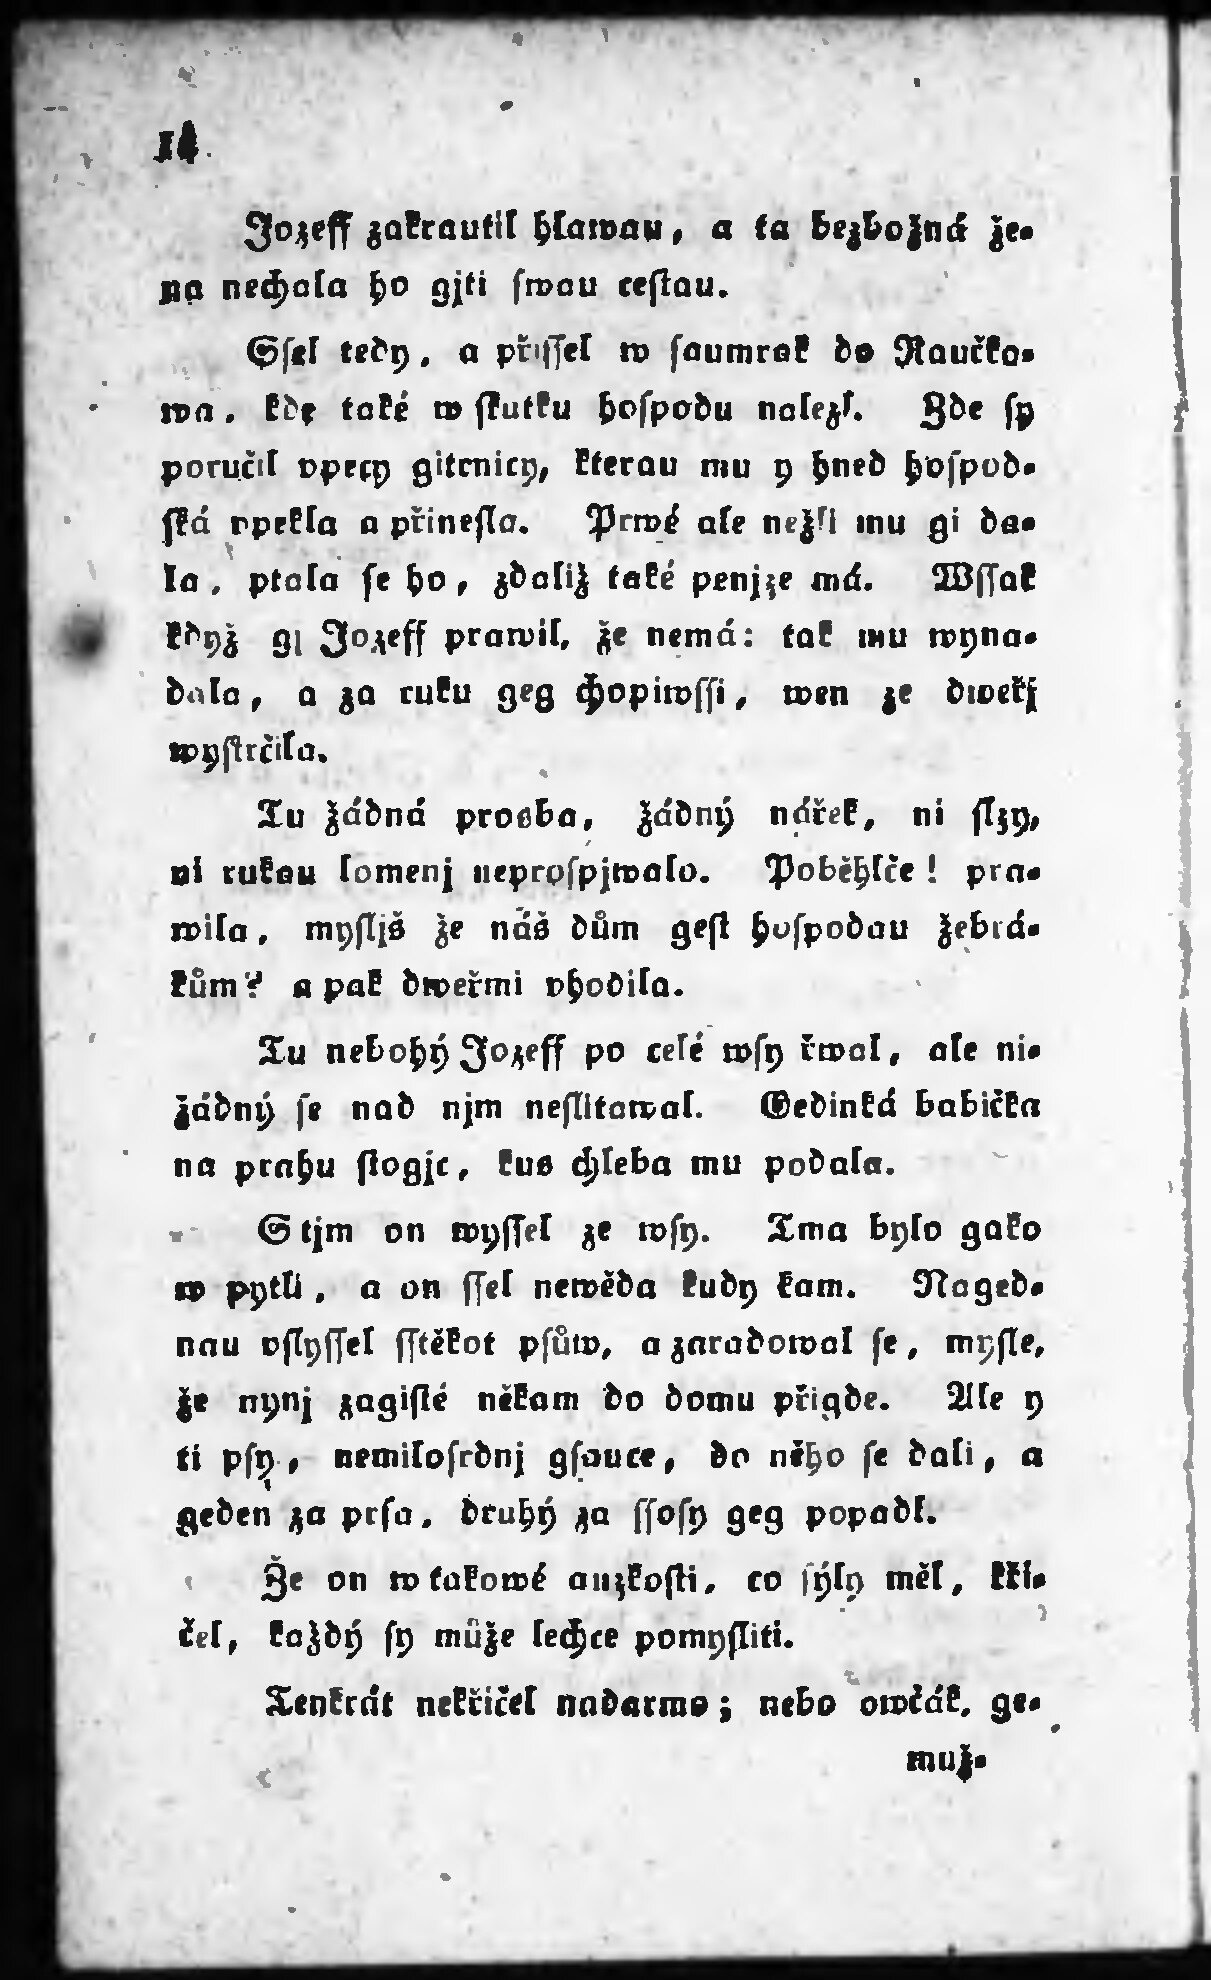 14
Jozeff zakrautil hlawau, a ta bezbožná že-
na nechala ho gjti swau cestau.
Ssel tedy, a přissel w saumrak do Raučko-
wa, kde také w skutku hospodu nalezl. Zde sy
poručil vpecy gitrnicy, kterau mu y hned hospod-
ská vpekla a přinesla. Prwé ale nežli mu gi da-
la, ptala se ho, zdaliž také penjze má. Wssak
když gj Jozeff prawil, že nemá: tak mu wyna-
dala, a za ruku geg chopiwssi, wen ze dweřj
wystrčila.
Tu žádná prosba, žádný nářek, ni slzy,
ni rukau lomenj neprospjwalo. Poběhlče! pra-
wila, mysljš že náš dům gest hospodau žebrá-
kům? a pak dweřmi vhodila.
Tu nebohý Jozeff po celé wsy řwal, ale ni-
žádný se nad njm neslitowal. Gedinká babička
na prahu stogjc, kus chleba mu podala.
S tjm on wyssel ze wsy. Tma bylo gako
w pytli, a on ssel newěda kudy kam. Naged-
nau vslyssel sstěkot psůw, a zaradowal se, mysle,
že nynj zagisté někam do domu přigde. Ale y
ti psy, nemilosrdnj gsauce, do něho se dali, a
geden za prsa, druhý za ssosy geg popadl.
Že on w takowé auzkosti, co sýly měl, kři-
čel, každý sy může lechce pomysliti.
Tenkrát nekřičel nadarmo; nebo owčák, ge-
muž-